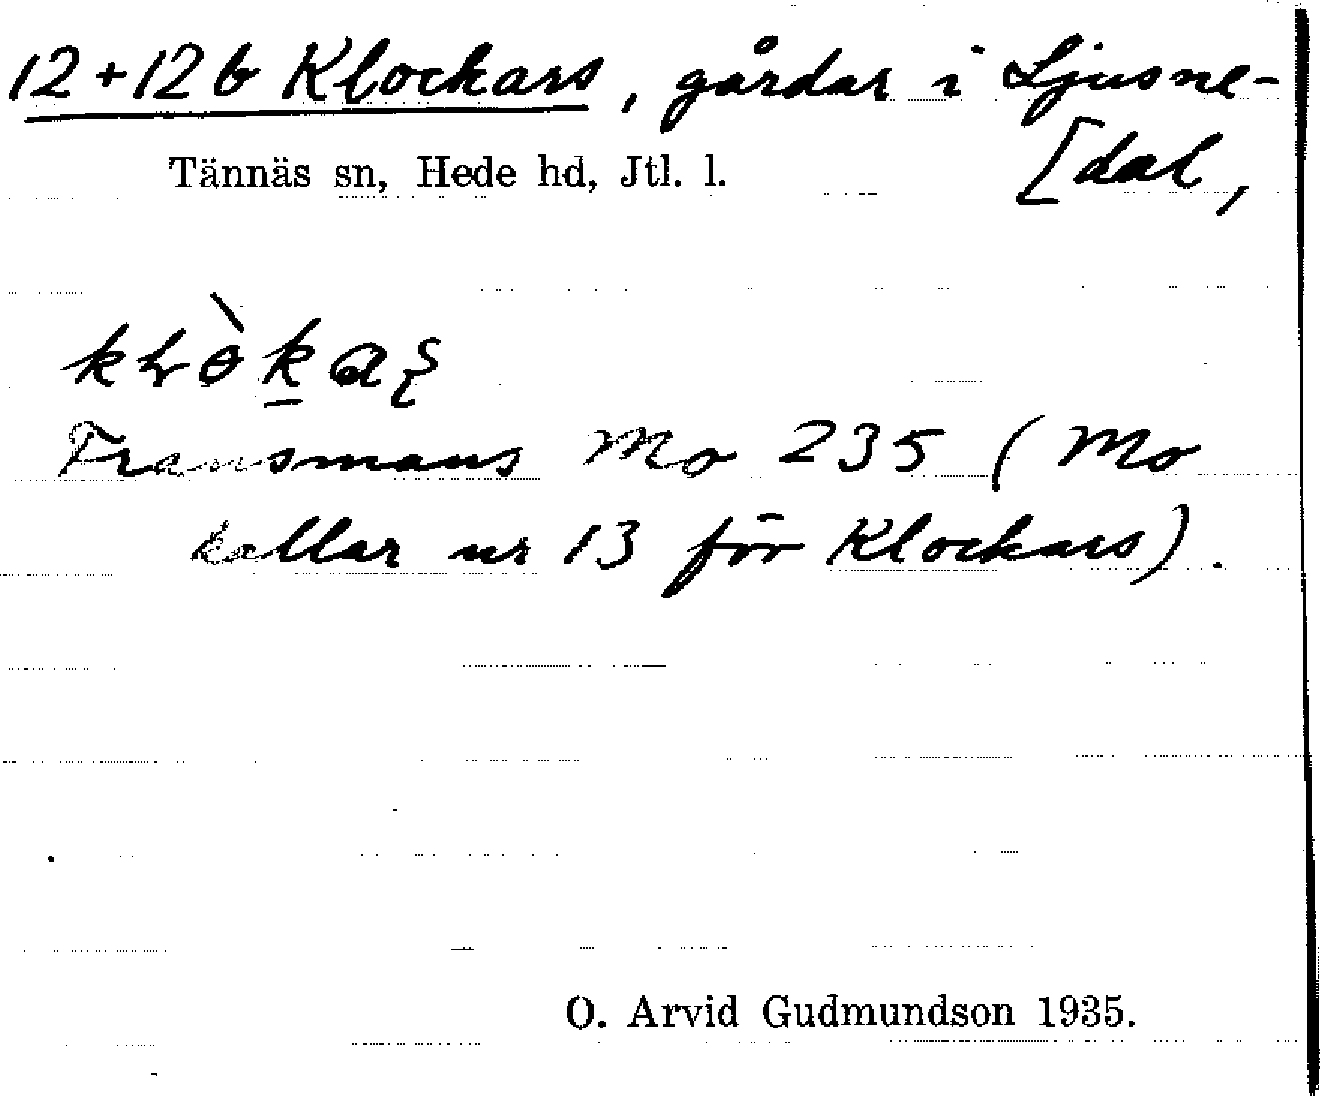 12+12b Klockars, gårdar i Ljusne-
[dal,
Tännäs sn, Hede hd, Jtl. l.
Fransmans Mo 235 (Mo
kallar nr 13 för Klockars).
O. Arvid Gudmundson 1935.